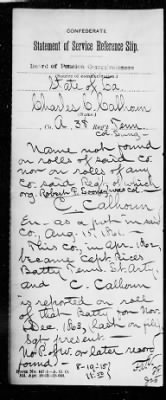 CONFEDERATE
Statement of Service Reference Slip.
Board of Pension Commissioners
State of Ga.
Charles C. Calhoun
(Name)
Co. A. 38 Reg't Tenn
Name not found
on rolls of said Co.
nor on rolls of any
Co. said Regt of which
org Robert F.
C. Calhoun
En. as a pvt in said
Co, Aug. 15, 1861.
This Co, in Apr. 1862
became Capt. Rices
Batty Tenn. Lt. Arty.
and C. Calhoun
is reported on roll
of that Batty for Nov.
Dec. 1863, last on file,
Sgt present.
No Off. or later record
found.
8-10-15